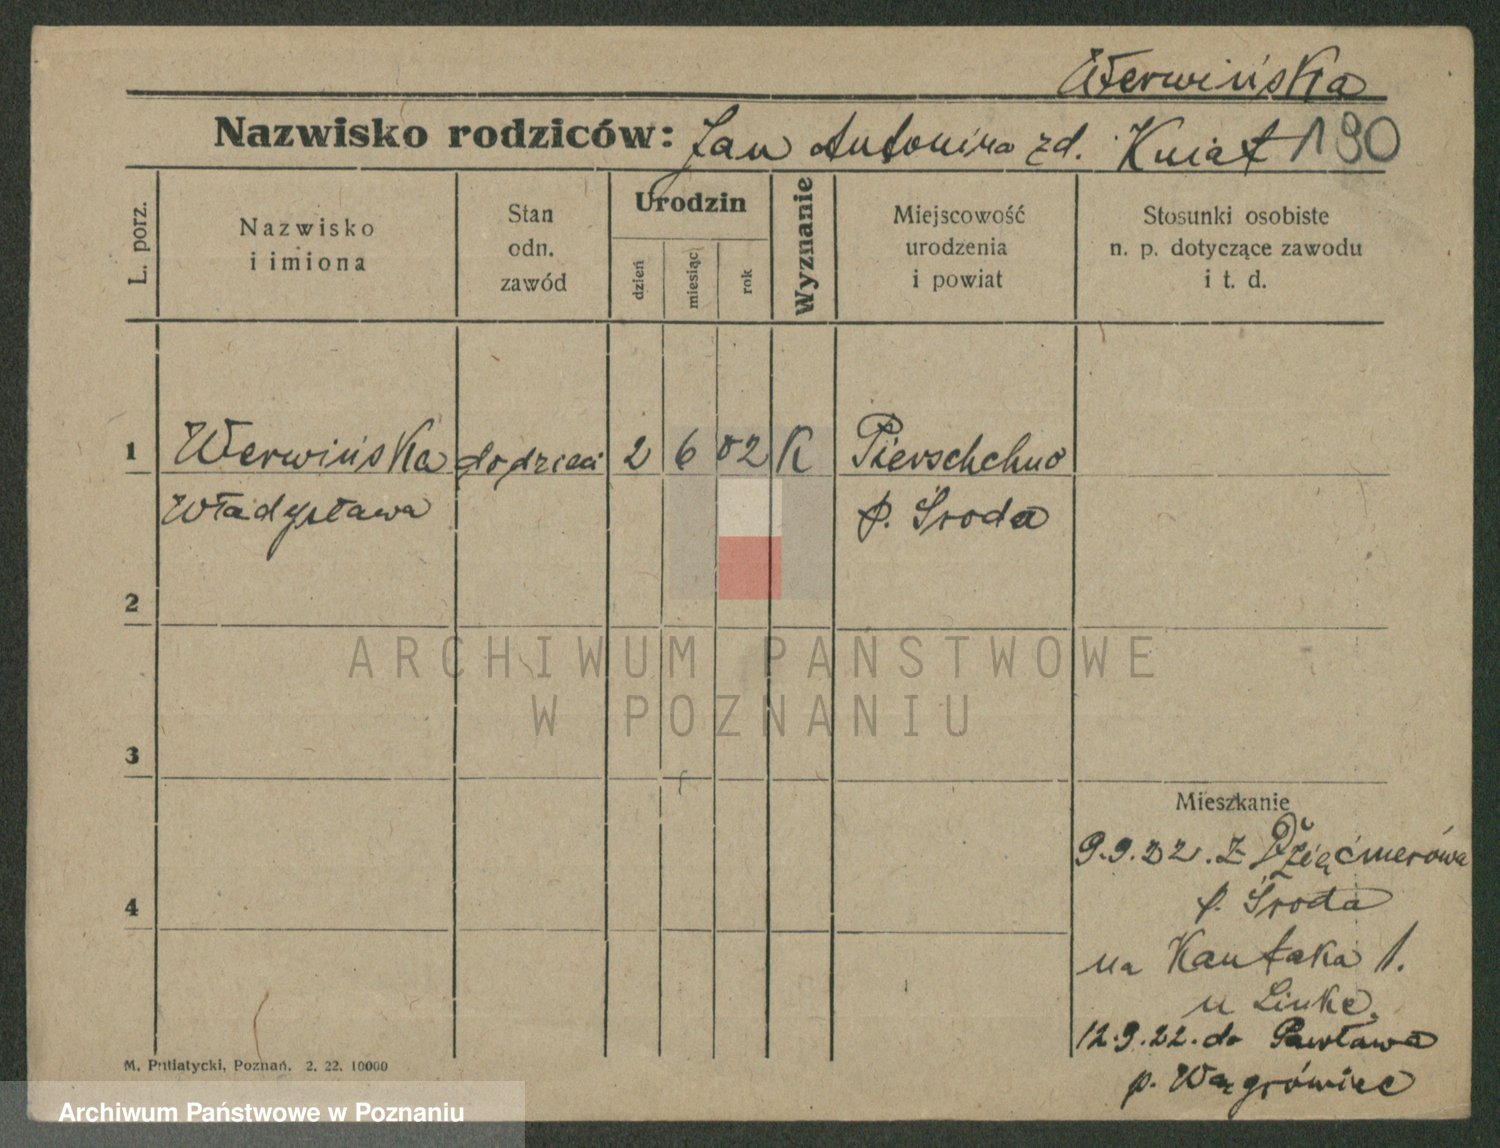 Werwińska
Nazwisko rodziców: Jan Antonina zd. Kniat 190
L. porz.
Nazwisko
i imiona
Stan
odn.
zawód
Urodzin
dzień
miesiąc
rok
Wyznanie
Miejscowość
urodzenia
i powiat
Stosunki osobiste
n. p. dotyczące zawodu
i t. d.
1 Werwińska do dzieci 2 6 02 K Pierschchno
Władysława p. Środa
2
ARCHIWUM PAŃSTWOWE
W POZNANIU
3
Mieszkanie
9.9.22. z
4
p. Środa
na Kantaka 1.
u Linke.
12.9.22. do Pawłowa
p. Wągrówiec
M. Putiatycki, Poznań. 2. 22. 10000
Archiwum Państwowe w Poznaniu